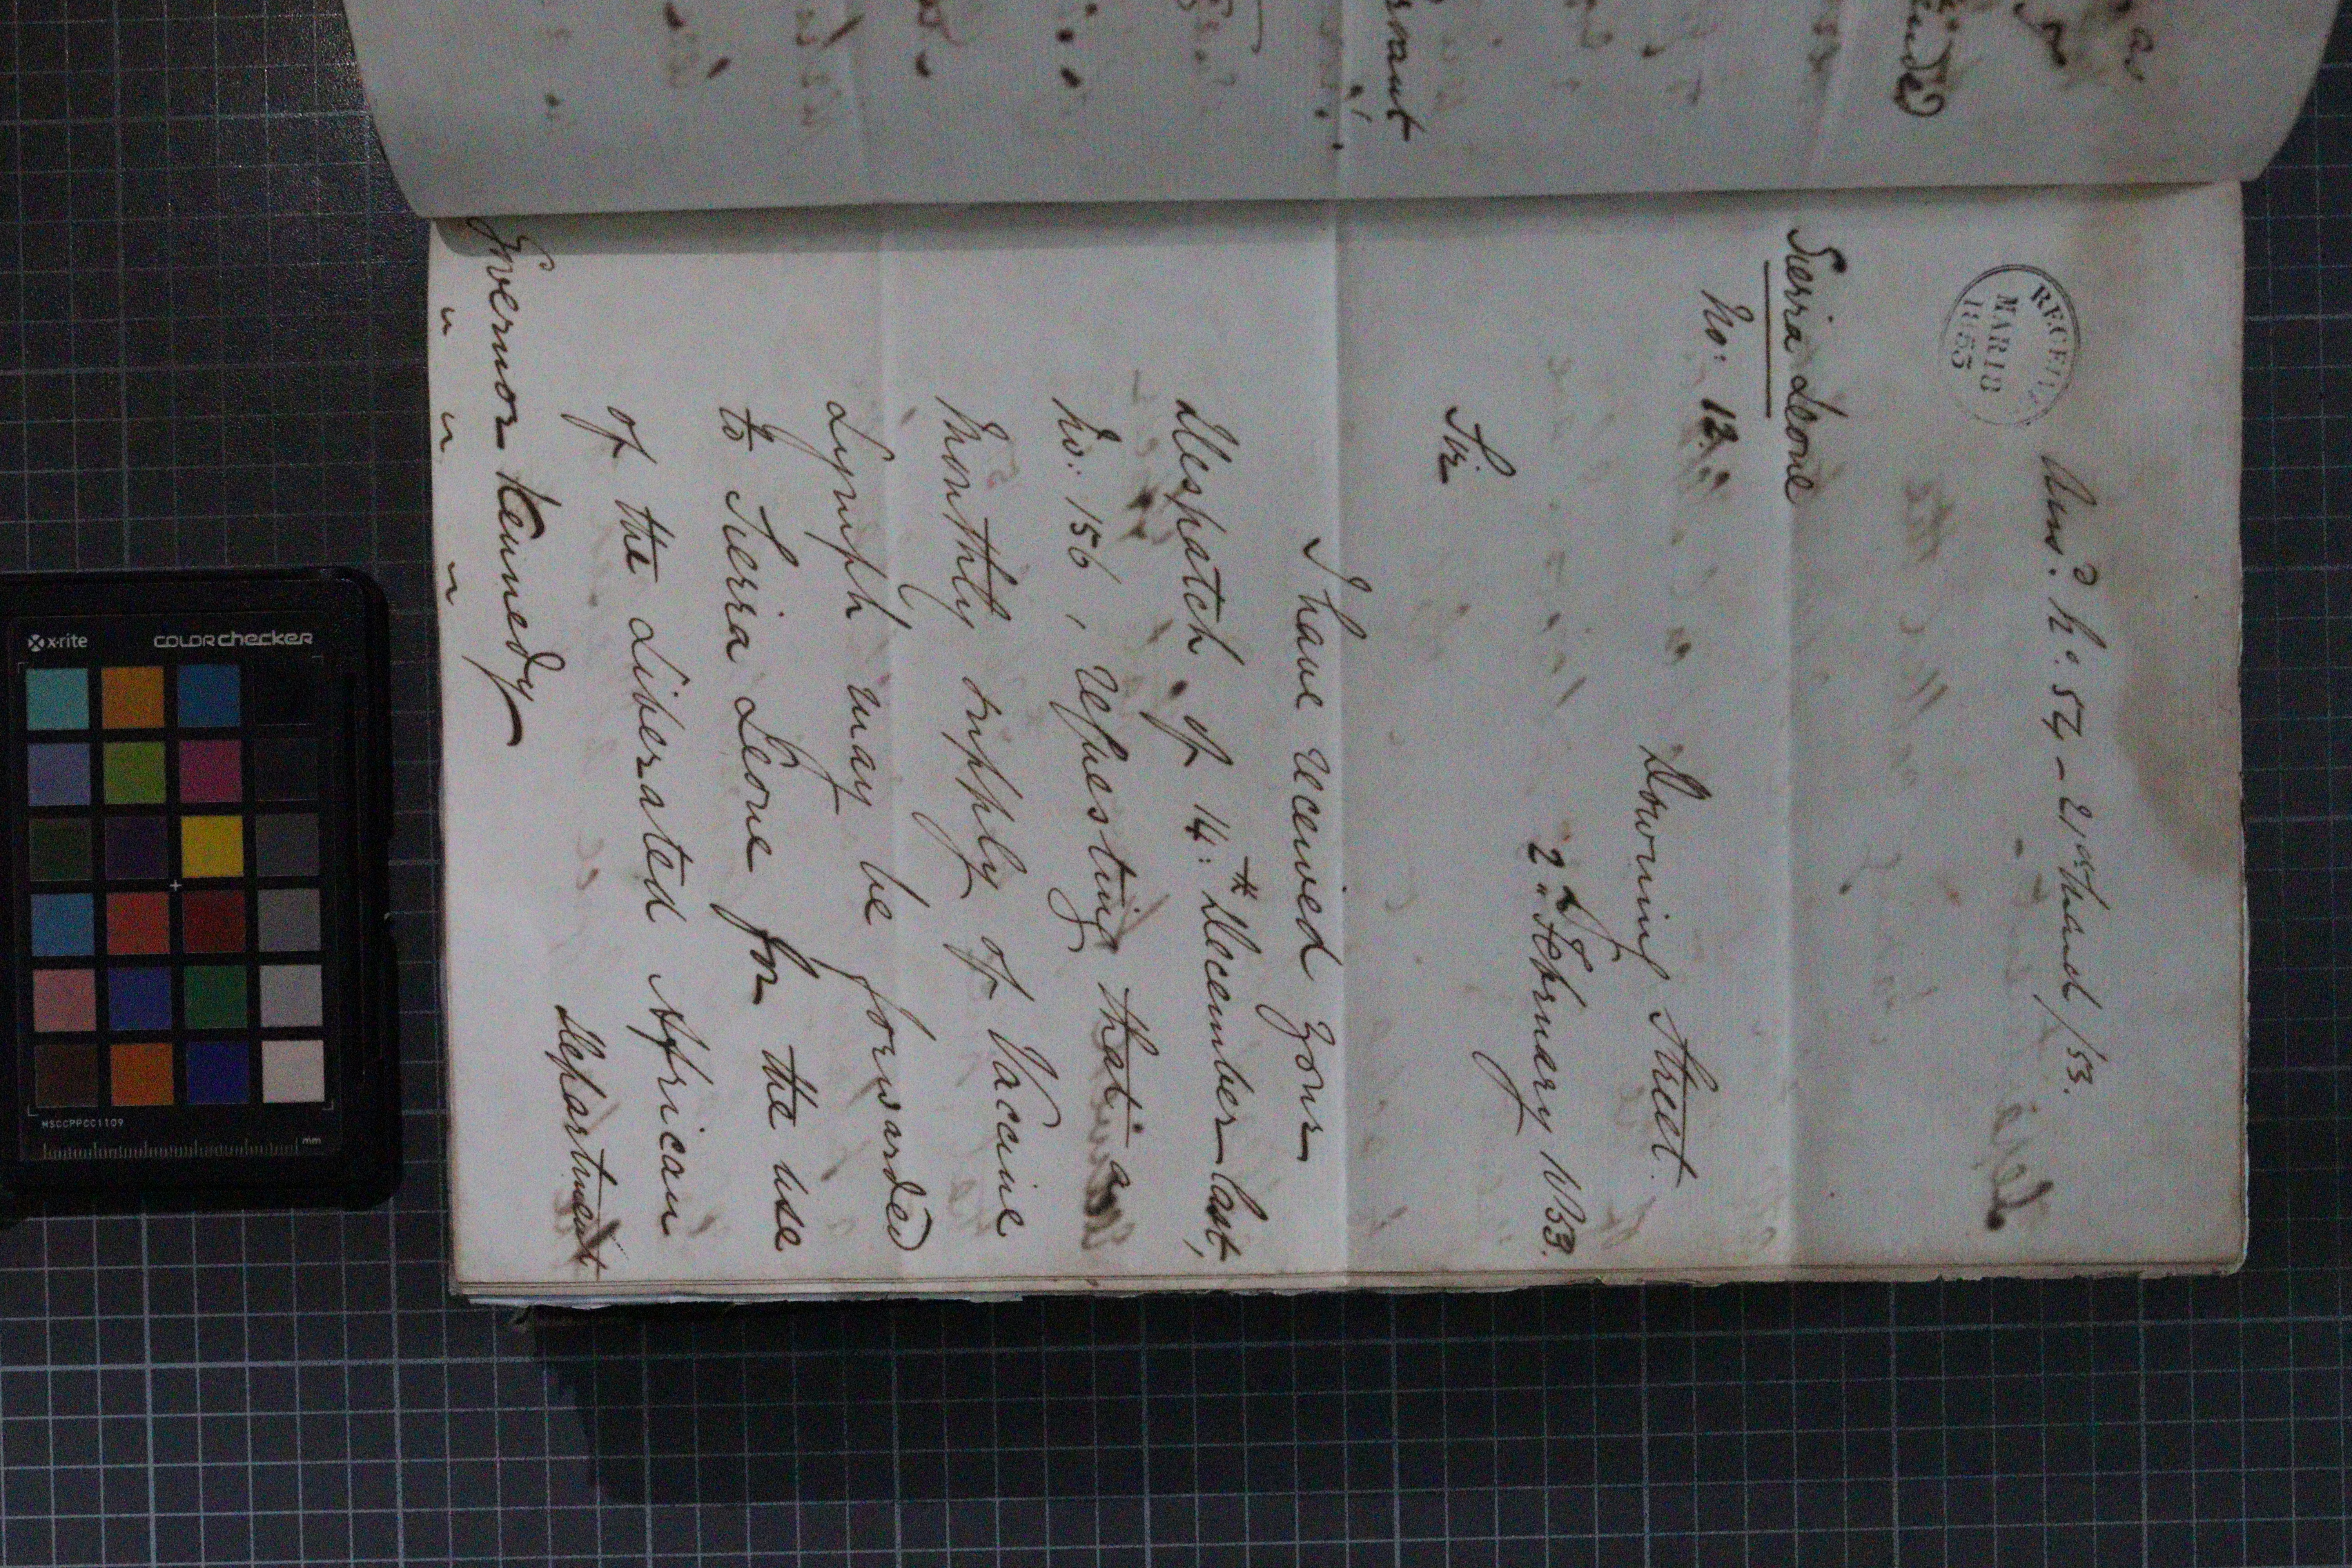 Ans.d No. 54 - 21st March /53.
RECEIVED
MAR 18
1853
Sierra Leone
No: 12.
Downing Street.
2nd February 1853.
Sir
I have received your
Despatch of 14th December last,
No: 156, requesting that a
Monthly supply of Vaccine
Lymph may be forwarded
to Sierra Leone for the use
of the Liberated African
Department
Governor Kennedy
x-rite COLORchecker
MSCCPPCC1109
mm